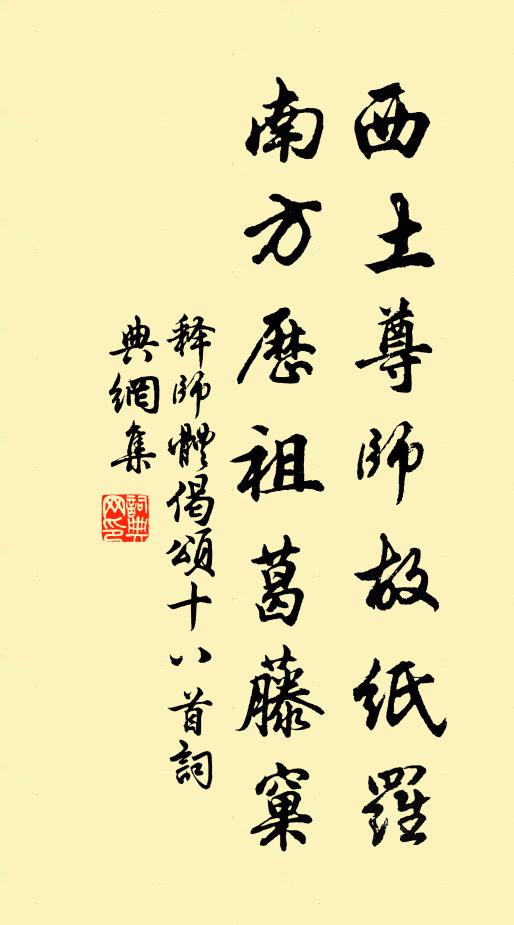 西土尊師故紙羅
南方歷祖葛藤窠
释師體偈頌十八首詞
典網集
詞典網印